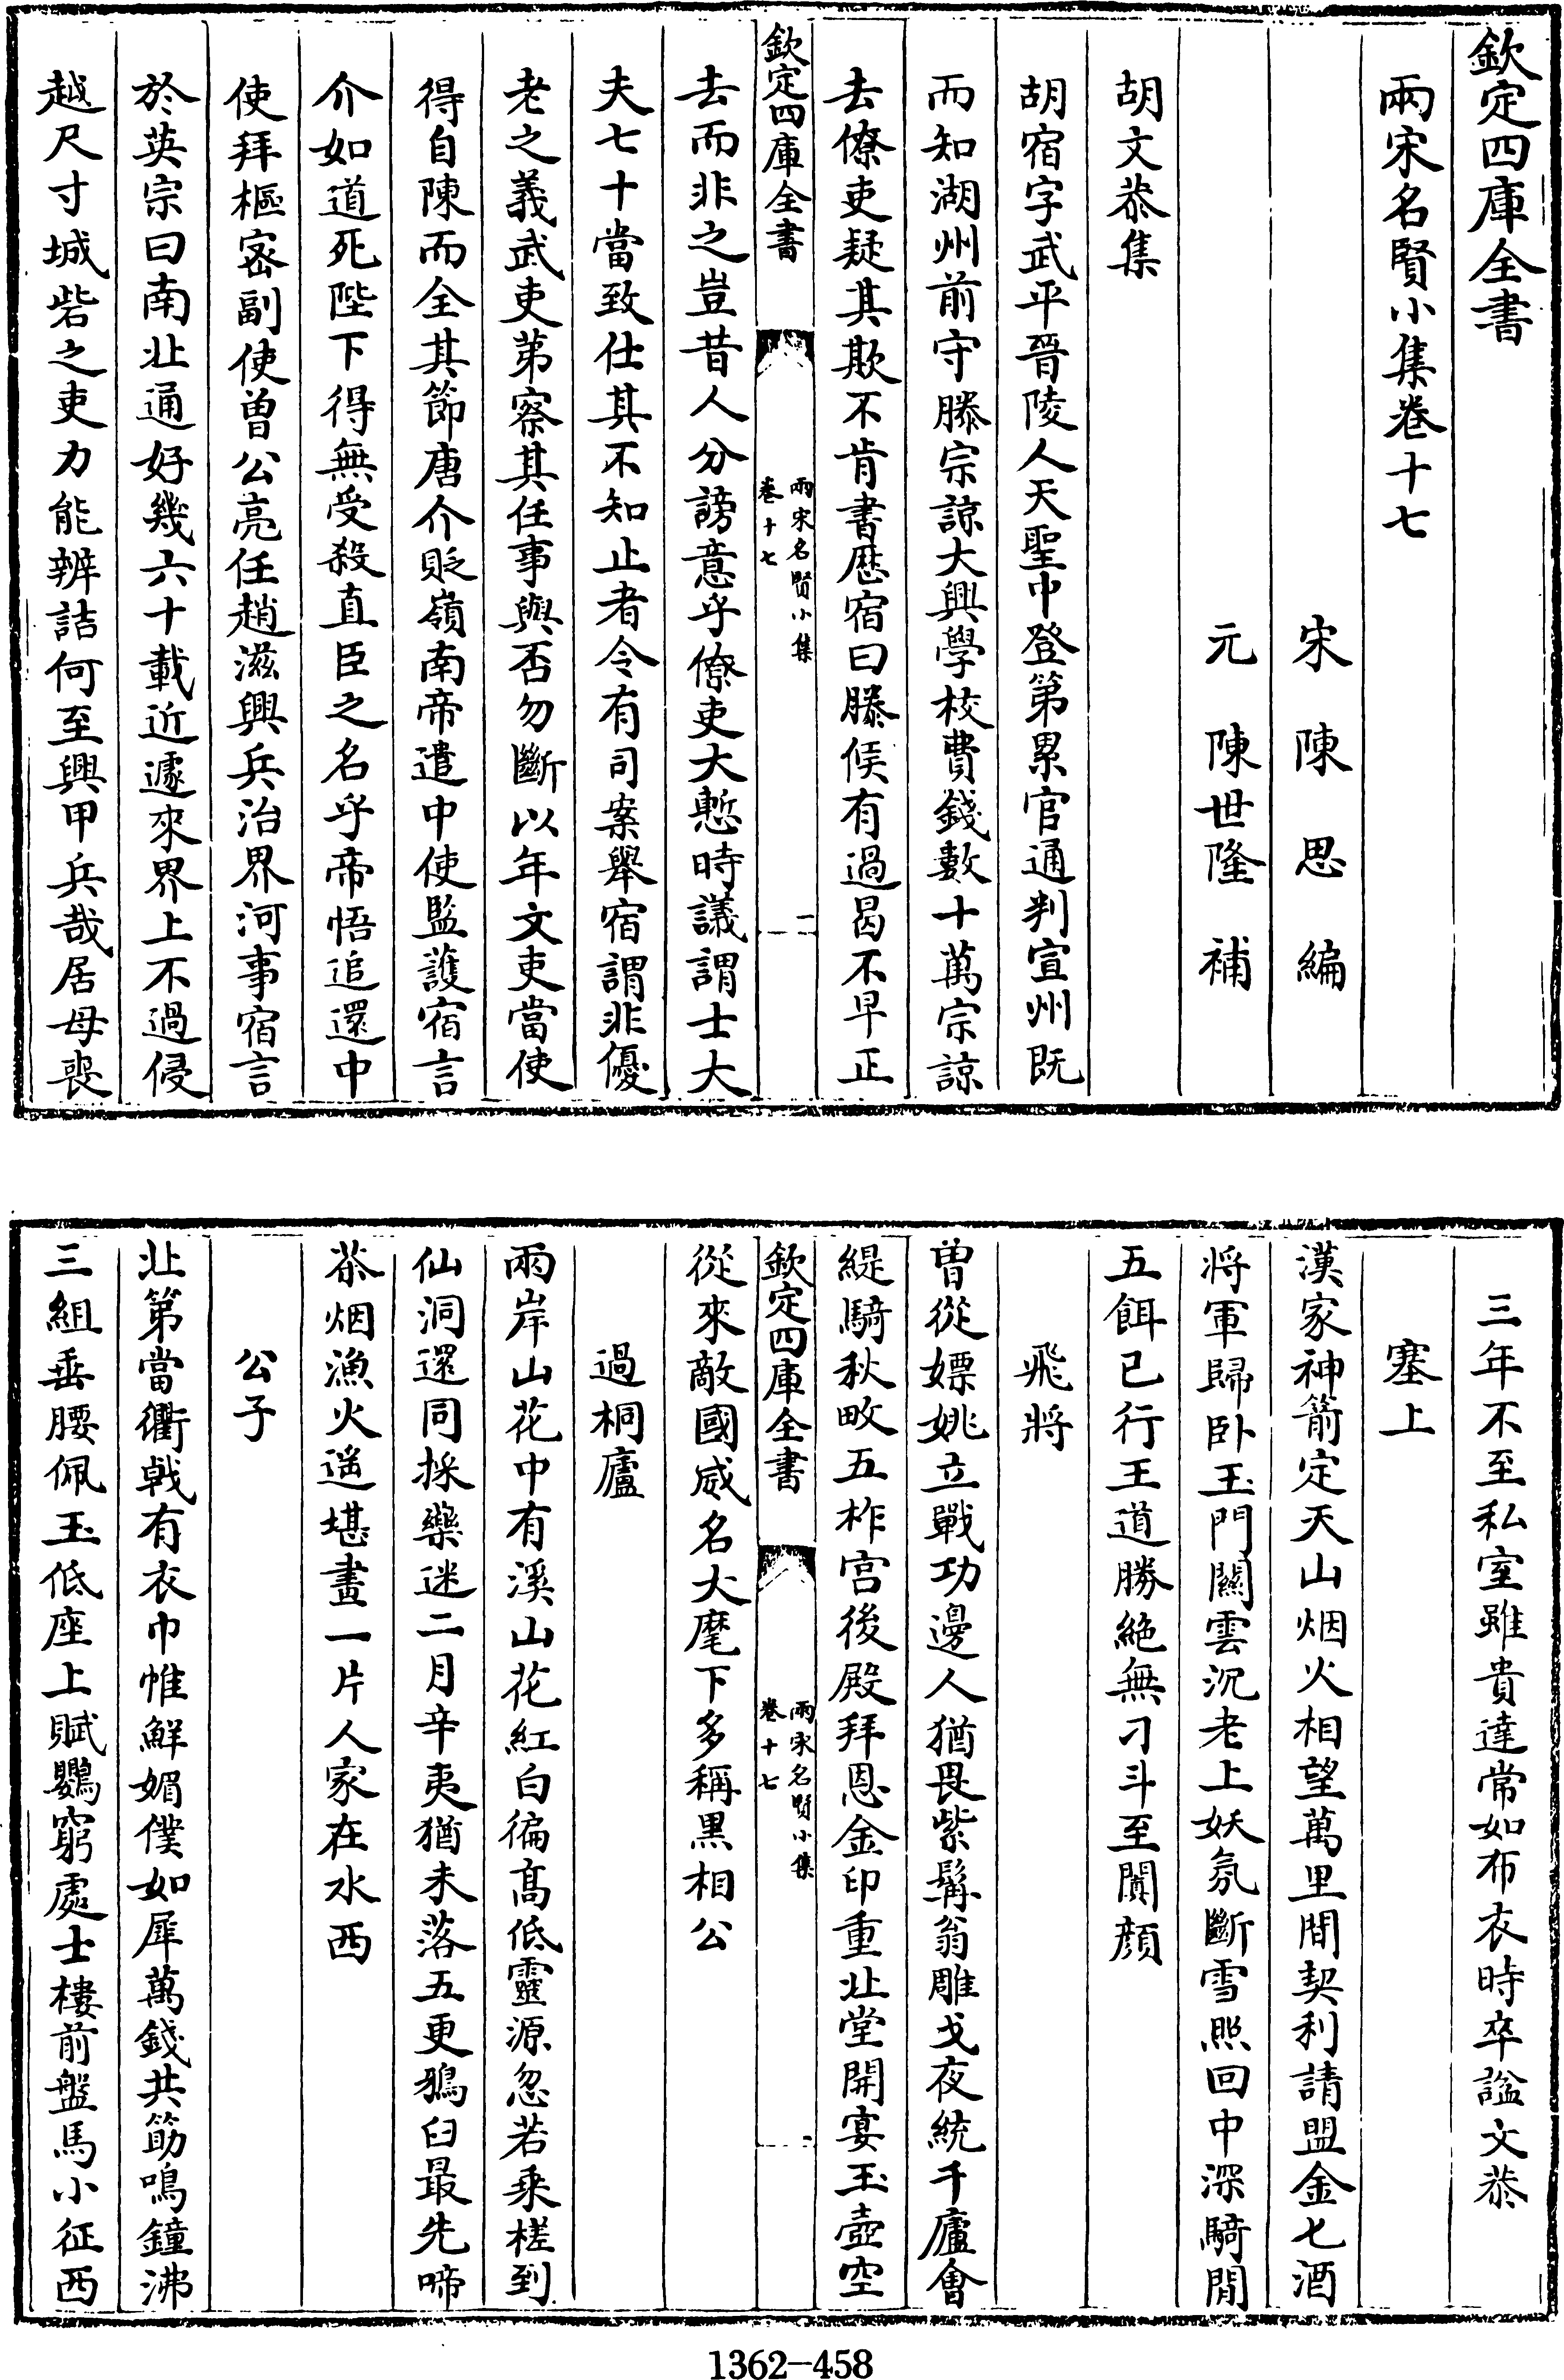 欽定四庫全書
兩宋名賢小集卷十七
宋陳思編
元陳世隆補
胡文恭集
胡宿字武平晉陵人天聖中登第累官通判宣州既
而知湖州前守滕宗諒大興學校費錢數十萬宗諒
去僚吏疑其欺不肯書歴宿曰滕侯有過曷不早正
欽定四庫全書
兩宋名賢小集
卷十七
一
去而非之豈昔人分謗意乎僚吏大慙時議謂士大
夫七十當致仕其不知止者令有司案舉宿謂非優
老之義武吏第察其任事與否勿斷以年文吏當使
得自陳而全其節唐介貶嶺南帝遣中使監護宿言
介如道死陛下得無受殺直臣之名乎帝悟追還中
使拜樞宻副使曽公亮任趙滋興兵治界河事宿言
於英宗曰南北通好幾六十載近遽來界上不過侵
越尺寸城砦之吏力能辨詰何至興甲兵哉居母喪
三年不至私室雖貴達常如布衣時卒諡文恭
塞上
漢家神箭定天山烟火相望萬里間契利請盟金匕酒
將軍歸卧玉門關雲沉老上妖氛斷雪照回中深騎閒
五餌已行王道勝絶無刁斗至闐顔
飛將
曽從嫖姚立戰功邊人猶畏紫髯翁雕戈夜統千廬會
緹騎秋畋五柞宫後殿拜恩金印重北堂開宴玉壺空
欽定四庫全書
兩宋名賢小集
卷十七
從來敵國威名大麾下多稱黒相公
過桐廬
兩岸山花中有溪山花紅白徧髙低靈源忽若乘槎到
仙洞還同採藥迷二月辛夷猶未落五更鴉臼最先啼
茶烟漁火遥堪畫一片人家在水西
公子
北第當衢戟有衣巾帷鮮媚僕如犀萬錢共筯鳴鐘沸
三組垂腰佩玉低座上賦鸚窮處士樓前盤馬小征西
1362-458